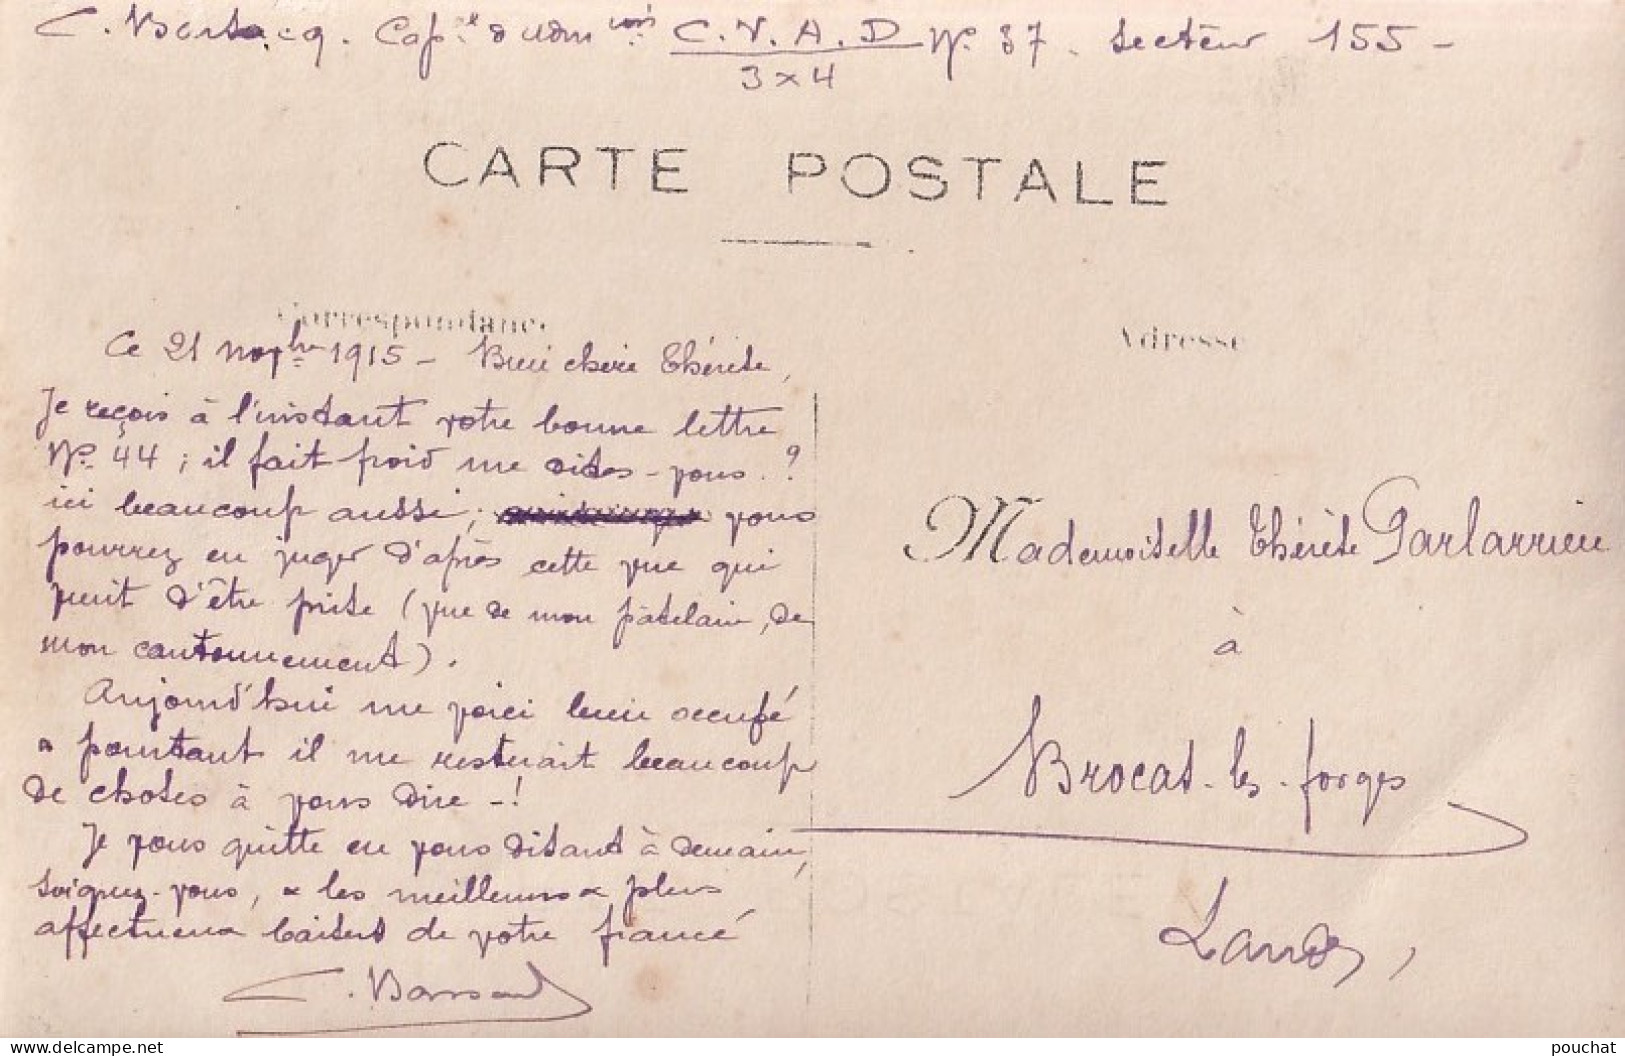 C. Barsacq. Cap.l d'adm on C.V.A.D No. 37. Secteur 155 -
3 x 4
CARTE POSTALE
Correspondance
Adresse
Ce 21 novbre 1915 - Bien chère Thérèse,
Je reçois à l'instant votre bonne lettre
No. 44 ; il fait froid me dites-vous ?
ici beaucoup aussi ; vous
pourrez en juger d'après cette vue qui
vient d'être prise (vue de mon patelain, de
mon cantonnement).
Aujourd'hui me voici bien occupé
& pourtant il me resterait beaucoup
de choses à vous dire - !
Je vous quitte en vous disant à demain,
soignez-vous, & les meilleurs & plus
affectueux baisers de votre fiancé
C. Barsacq
Mademoiselle Thérèse Garlarrieu
à
Brocas-les-forges
Landes,
delcampe.net
pouchat